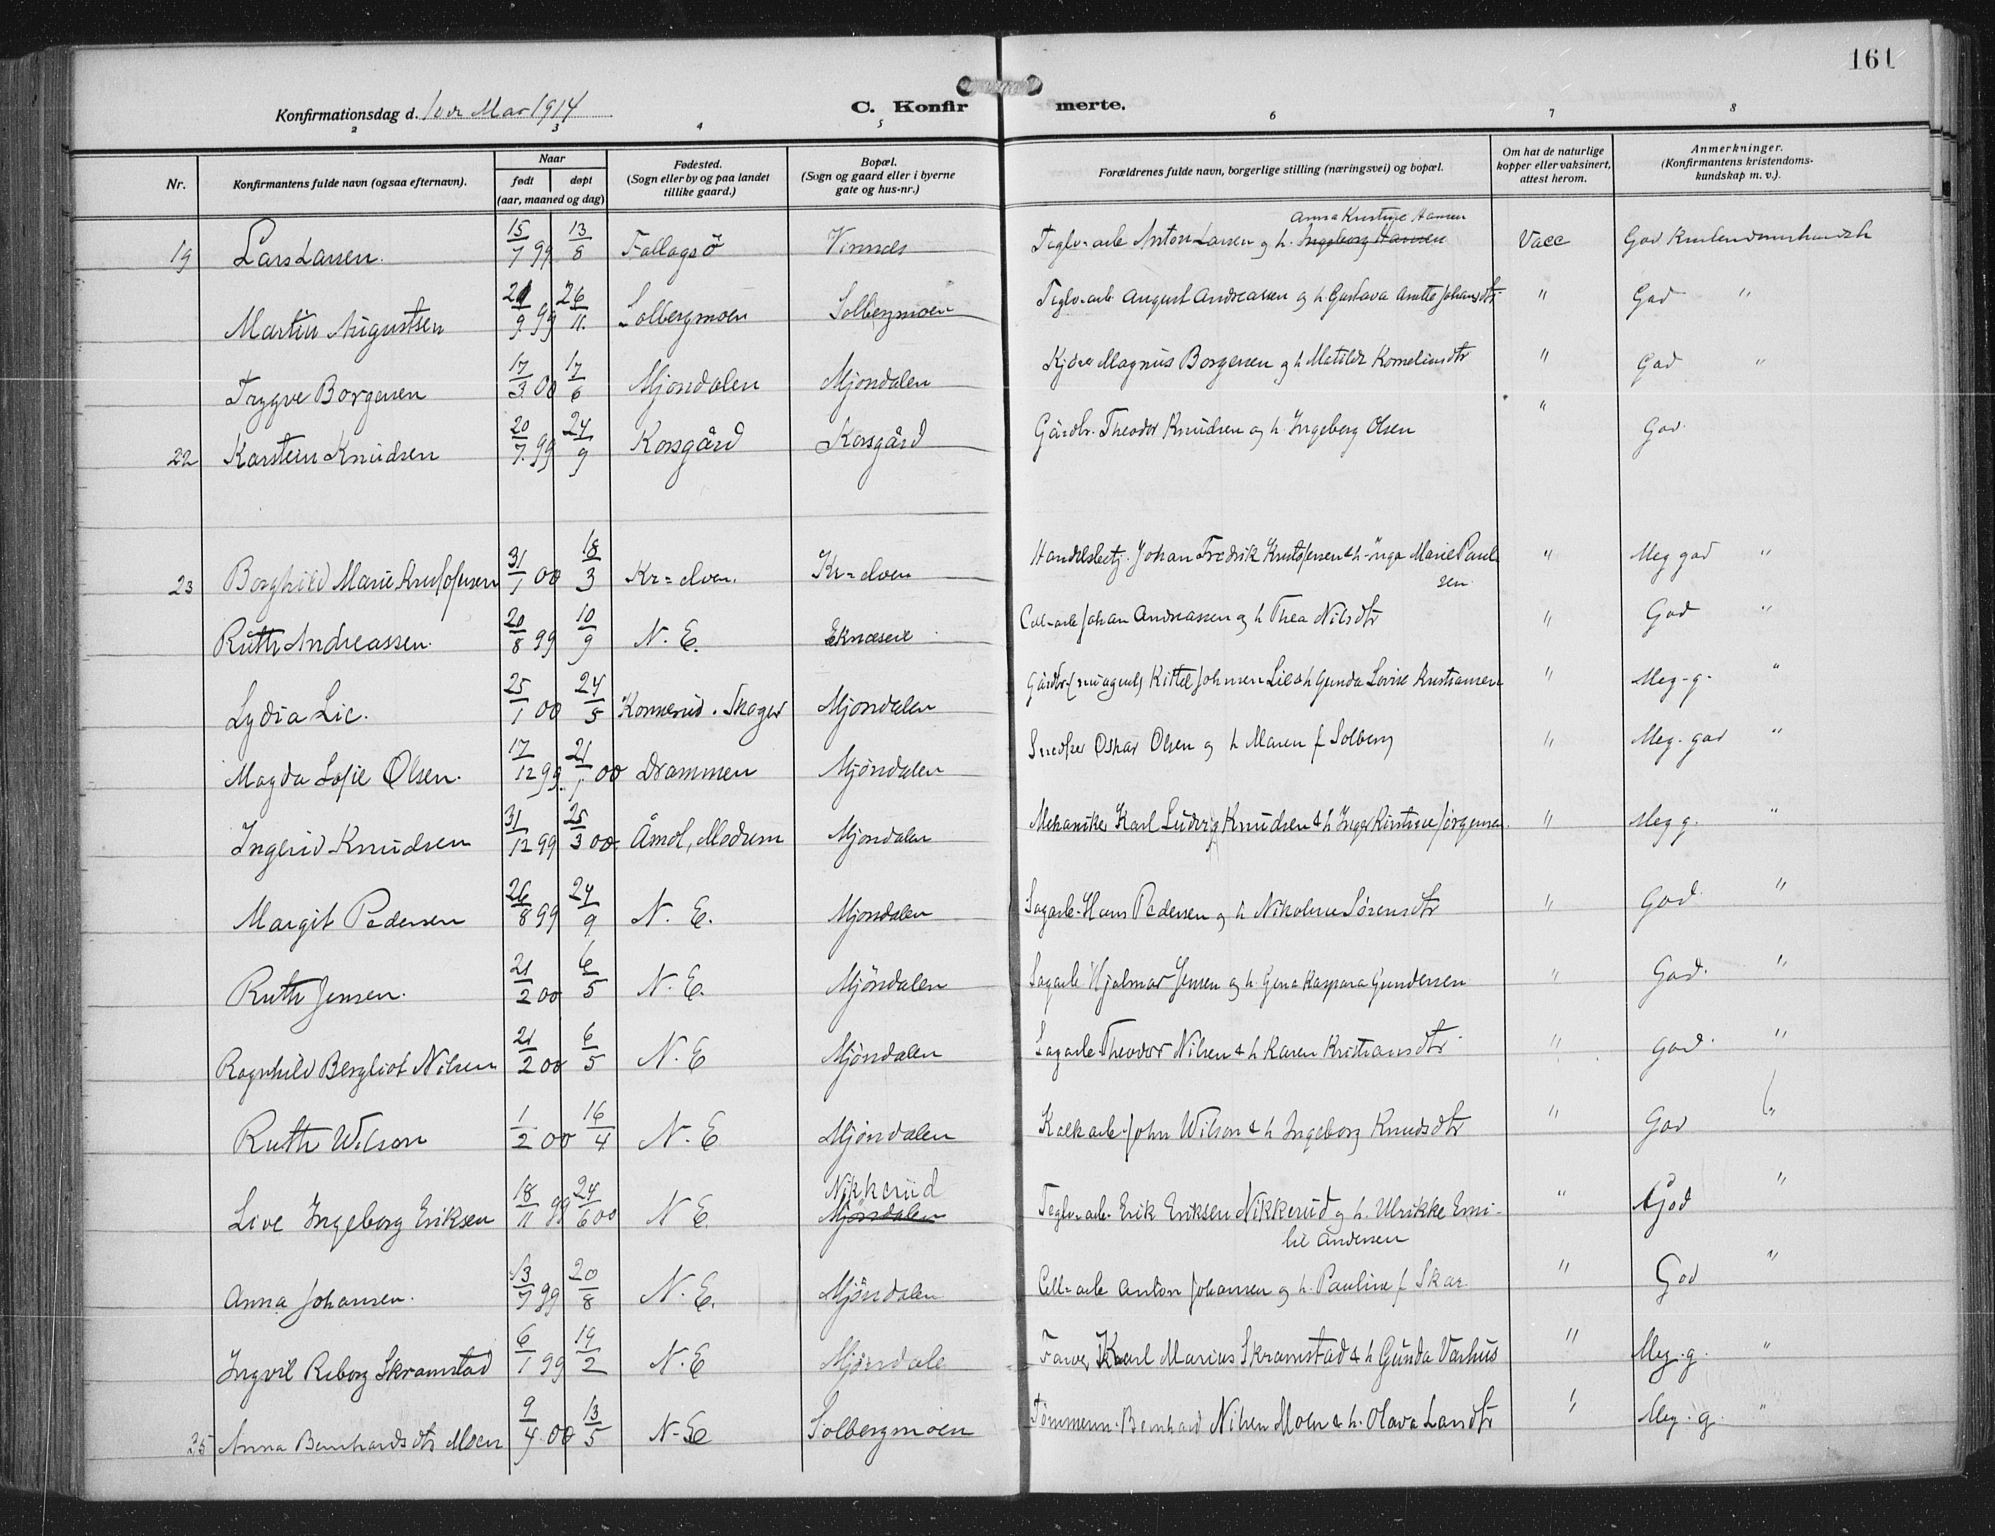 161
Konfirmationsdag d. 10de Mai 1914
C. Konfir merte.
2 3 4 5 6 7 8
Nr.
Konfirmantens fulde navn (ogsaa efternavn).
Naar
født døpt
(aar, maaned og dag)
Fødested.
(Sogn eller by og paa landet
tillike gaard.)
Bopæl.
(Sogn og gaard eller i byerne
gate og hus-nr.)
Forældrenes fulde navn, borgerlige stilling (næringsvei) og bopæl.
Om hat de naturlige
kopper eller vaksinert,
attest herom.
Anmerkninger.
(Konfirmantens kristendoms-
kundskap m. v.).
Anna Kristine Hansen
19 Lars Larsen. 15/7 99 13/8 Vinnes Teglv-arb Anton Larsen og h. Ingeborg Hansen Vacc God Kristendomskundsk
Martin Augustsen 9 99 26/11. Solbergmoen Solbergmoen Teglv-arb August Andreasen og h Gustava Anette Johansdtr " God "
Trygve Borgersen 17/3 00 17/6 Mjøndalen Mjøndalen Magnus Borgersen og h Matilde Korneliusdtr " God "
22 Karstein Knudsen 20/7 99 24/9 Korsgård Korsgård Gårdbr. Theodor Knudsen og h. Ingeborg Olsen " God.
23 Borghild Marie Kristofersen 31/1 00 18/3 Kr=elven. Kr=elven Handelsbetj. Johan Fredrik Kristofersen & h. Inga Marie Paul " Meg god "
sen.
Ruth Andreassen. 20/8 99 10/9 N. E. Eknæseie Cell-arb Johan Andreassen og h Thea Nilsdtr " God "
Lydia Lie. 25/1 00 24/5 Konnerud. Skoger Mjøndalen Kittel Johnsen Lie & h Gunda Lovise Kristiansen " Meg-g. "
Magda Sofie Olsen. 17/12 99. 21/1 00 Drammen Mjøndalen Snedker Oskar Olsen og h Maren f Solberg " Meg. god "
Ingerid Knudsen 31/12 99 25/3 00. Åmot, Modum Mjøndalen Mekaniker Karl Ludvig Knudsen & h Inger Kirstine Jørgensen. " Meg g. "
Margit Pedersen 26/8 99 24/9 N. E. Mjøndalen Sagarb. Hans Pedersen og h Nikoline Sørensdtr " God "
Ruth Jensen. 21/2 00 6/5 N. E. Mjøndalen Sagarb Hjalmar Jensen og h. Gina Kaspara Gundersen " God. "
Ragnhild Bergliot Nilsen 21/2 00 6/5 N. E Mjøndalen Sagarb Theodor Nilsen & h Karen Kristiansdtr " God. "
Ruth Wilson 1/2 00 16/4 N. E Mjøndalen Kalkarb. John Wilson & h Ingeborg Knudsdtr " God "
Nikkerud
Live Ingeborg Eriksen 18/11 99 24/6 00 N E. Mjøndalen Teglv-arb. Erik Eriksen Nikkerud og h. Ulrikke Emi- " God "
lie Andersen
Anna Johansen. 13/7 99 20/8 N. E. Mjøndalen Cell-arb Anton Johansen og h. Pauline f Skar. " God "
Ingvil Reborg Skramstad 6/1 99 19/2 N. E Mjøndale Farver Karl Marius Skramstad & h Gunda Varhus " Meg. g. "
35 Anna Bernhardsdtr Moen 9/4 00 13/5 N-E Solbergmoen Tømmerm. Bernhard Nilsen Moen & h. Olava Larsdtr " Meg. g. "